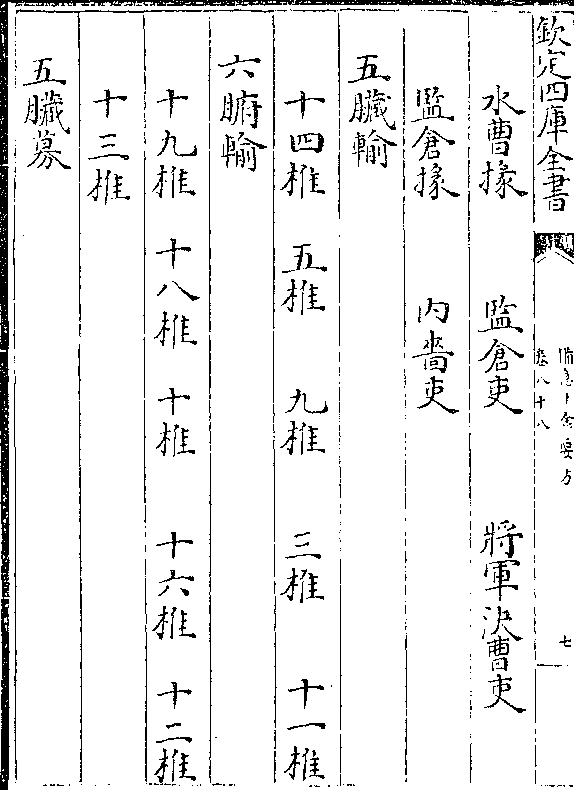 欽定四庫全書
備急千金要方
卷八十八
七
水曹掾 監倉吏 將軍決曹吏
監倉掾 内嗇吏
五臟輸
十四椎 五椎 九椎 三椎 十一椎
六腑輸
十九椎 十八椎 十椎 十六椎 十二椎
十三椎
五臟募